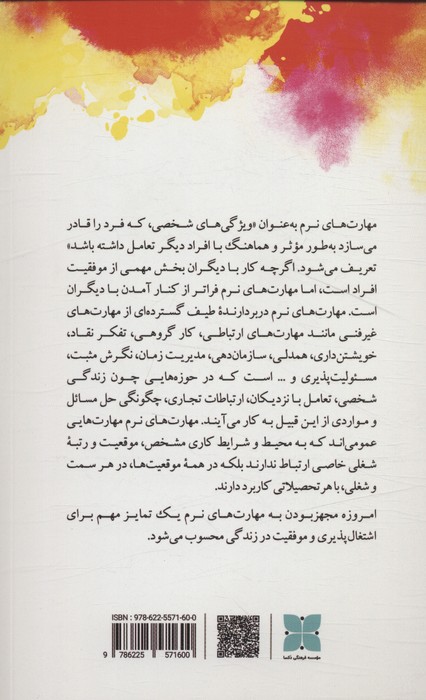 مهارت‌های نرم به‌عنوان «ویژگی‌های شخصی، که فرد را قادر
می‌سازد به‌طور مؤثر و هماهنگ با افراد دیگر تعامل داشته باشد»
تعریف می‌شود. اگرچه کار با دیگران بخش مهمی از موفقیت
افراد است، اما مهارت‌های نرم فراتر از کنار آمدن با دیگران
است. مهارت‌های نرم دربردارندهٔ طیف گسترده‌ای از مهارت‌های
غیرفنی مانند مهارت‌های ارتباطی، کار گروهی، تفکر نقاد،
خویشتن‌داری، همدلی، سازمان‌دهی، مدیریت زمان، نگرش مثبت،
مسئولیت‌پذیری و ... است که در حوزه‌هایی چون زندگی
شخصی، تعامل با نزدیکان، ارتباطات تجاری، چگونگی حل مسائل
و مواردی از این قبیل به کار می‌آیند. مهارت‌های نرم مهارت‌هایی
عمومی‌اند که به محیط و شرایط کاری مشخص، موقعیت و رتبهٔ
شغلی خاصی ارتباط ندارند بلکه در همهٔ موقعیت‌ها، در هر سمت
و شغلی، با هر تحصیلاتی کاربرد دارند.
امروزه مجهزبودن به مهارت‌های نرم یک تمایز مهم برای
اشتغال‌پذیری و موفقیت در زندگی محسوب می‌شود.
ISBN : 978-622-5571-60-0
9 786225 571600